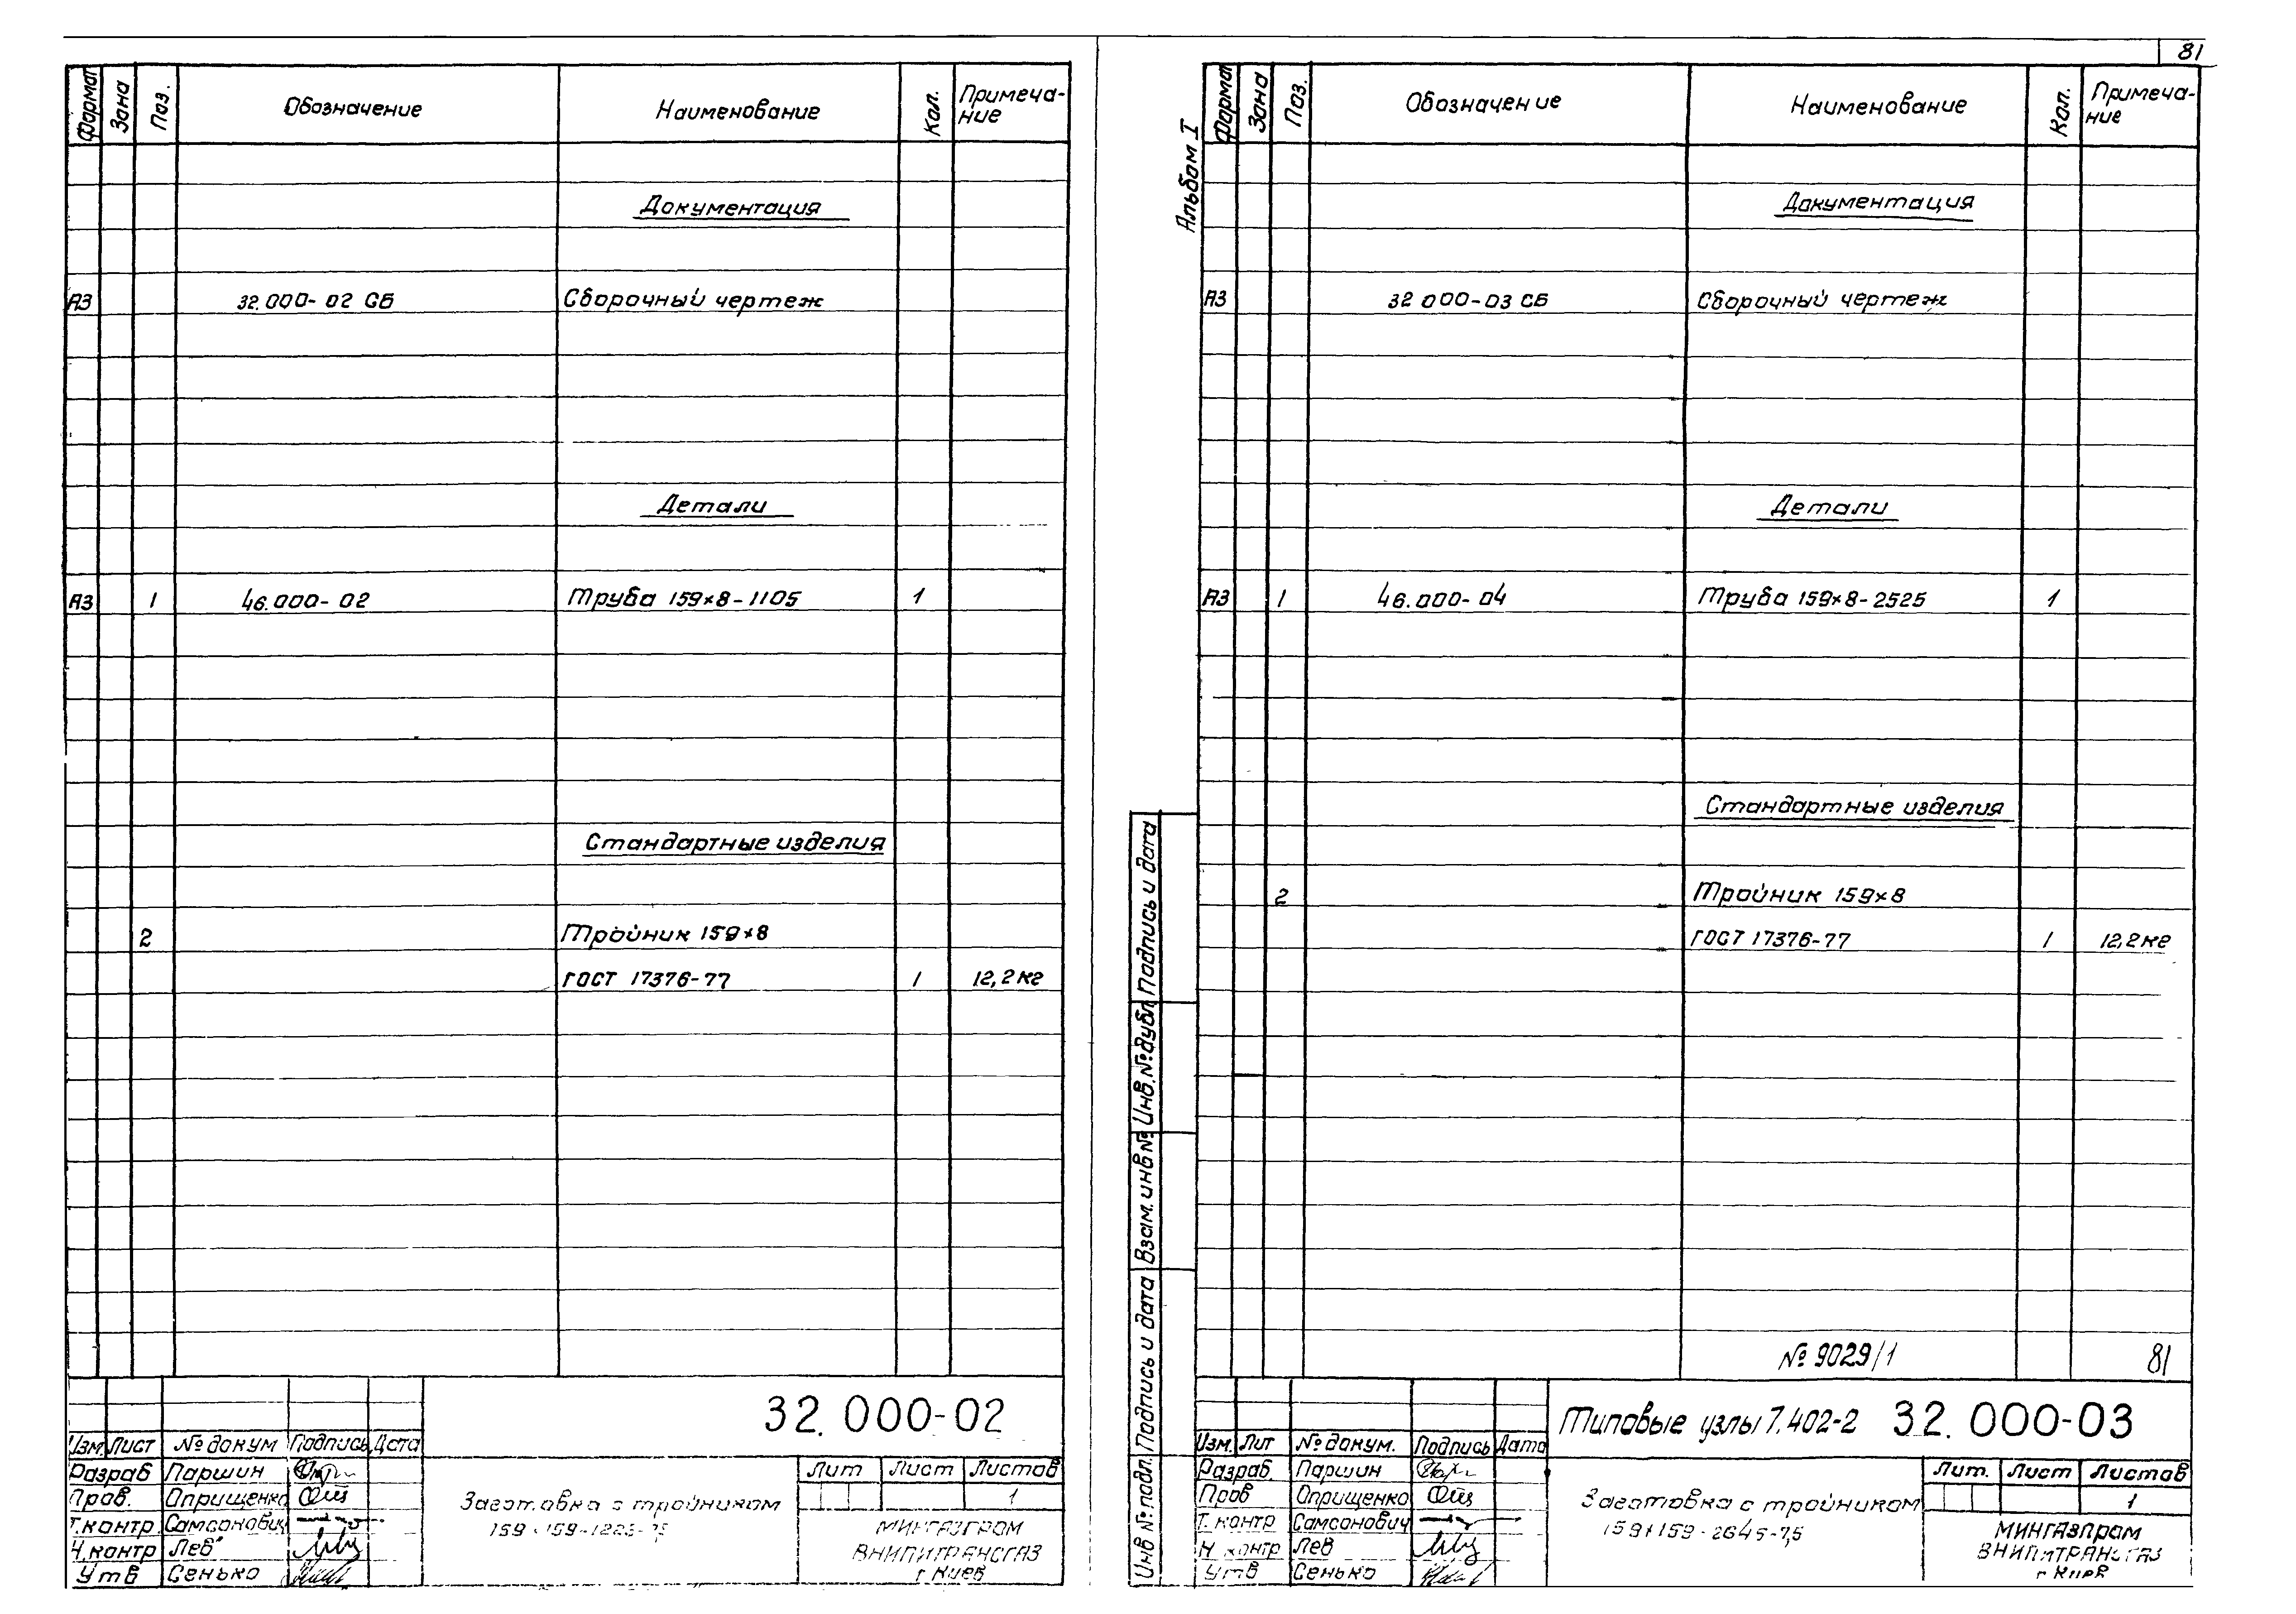 81
Формат Зона Поз. Обозначение Наименование Кол. Примеча-
ние
Документация
А3 32.000-02 СБ Сборочный чертеж
Детали
А3 1 46.000-02 Труба 159×8-1105 1
Стандартные изделия
2 Тройник 159×8
ГОСТ 17376-77 1 12,2 кг
32.000-02
Изм. Лист № докум Подпись Дата
Разраб Паршин
Пров. Оприщенко
Т.контр Самсонович
Н.контр Лев
Утв Сенько
Заготовка с тройником
Лит Лист Листов
1
МИНГАЗПРОМ
ВНИПИТРАНСГАЗ
г Киев
Альбом I
Формат Зона Поз. Обозначение Наименование Кол. Примеча-
ние
Документация
А3 32 000-03 СБ Сборочный чертеж
Детали
А3 1 46.000-04 Труба 159×8-2525 1
Стандартные изделия
2 Тройник 159×8
ГОСТ 17376-77 1 12,2 кг
№ 9029/1 81
Типовые узлы 7.402-2 32.000-03
Изм. Лит № докум. Подпись Дата
Разраб. Паршин
Пров Оприщенко
Т. контр Самсонович
Н контр Лев
Утв Сенько
Заготовка с тройником
159×159-2645-7,5
Лит. Лист Листов
1
МИНГАЗПРОМ
ВНИПИТРАНСГАЗ
г Киев
Инв № подл. Подпись и дата Взам. инв № Инв. № дубл Подпись и дата